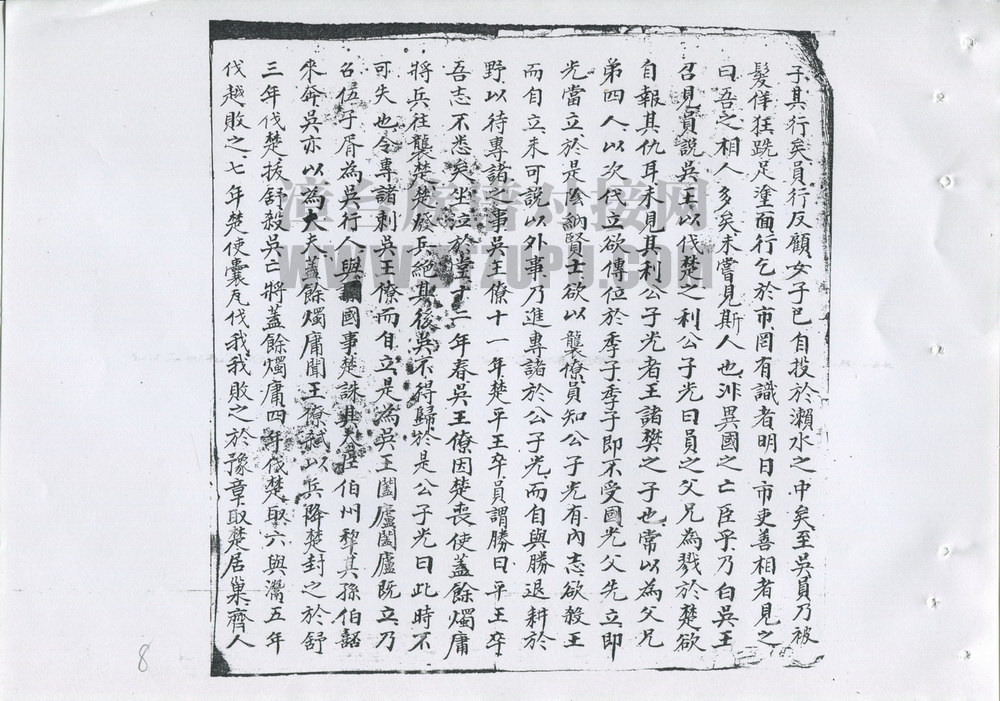 子其行矣員行反顧女子已自投於瀨水之中矣至吳員乃被
髮佯狂跣足塗面行乞於市罔有識者明日市吏善相者見之
曰吾之相人多矣未嘗見斯人也非異國之亡臣乎乃白吳王
召見員說吳王以伐楚之利公子光曰員之父兄為戮於楚欲
自報其仇耳未見其利公子光者王諸樊之子也常以為父兄
弟四人以次代立欲傳位於季子季子即不受國光父先立即
光當立於是陰納賢士欲以襲僚員知公子光有內志欲殺王
而自立未可說以外事乃進專諸於公子光而自與勝退耕於
野以待專諸之事吳王僚十一年楚平王卒員謂勝曰平王卒
吾志不悉矣坐泣於堂了二年春吳王僚因楚喪使蓋餘燭庸
將兵往襲楚楚發兵絕其後吳不得歸於是公子光曰此時不
可失也令專諸刺吳王僚而自立是為吳王闔廬闔廬既立乃
召伍子胥為吳行人與謀國事楚誅其大臣伯州犂其孫伯嚭
來奔吳亦以為大夫蓋餘燭庸聞王僚弒以兵降楚封之於舒
三年伐楚拔舒殺吳亡將蓋餘燭庸四年伐楚取六與灊五年
伐越敗之七年楚使囊瓦伐我我敗之於豫章取楚居巢齊人
漳台族譜对接网
WWW.ZZUPU.COM
8